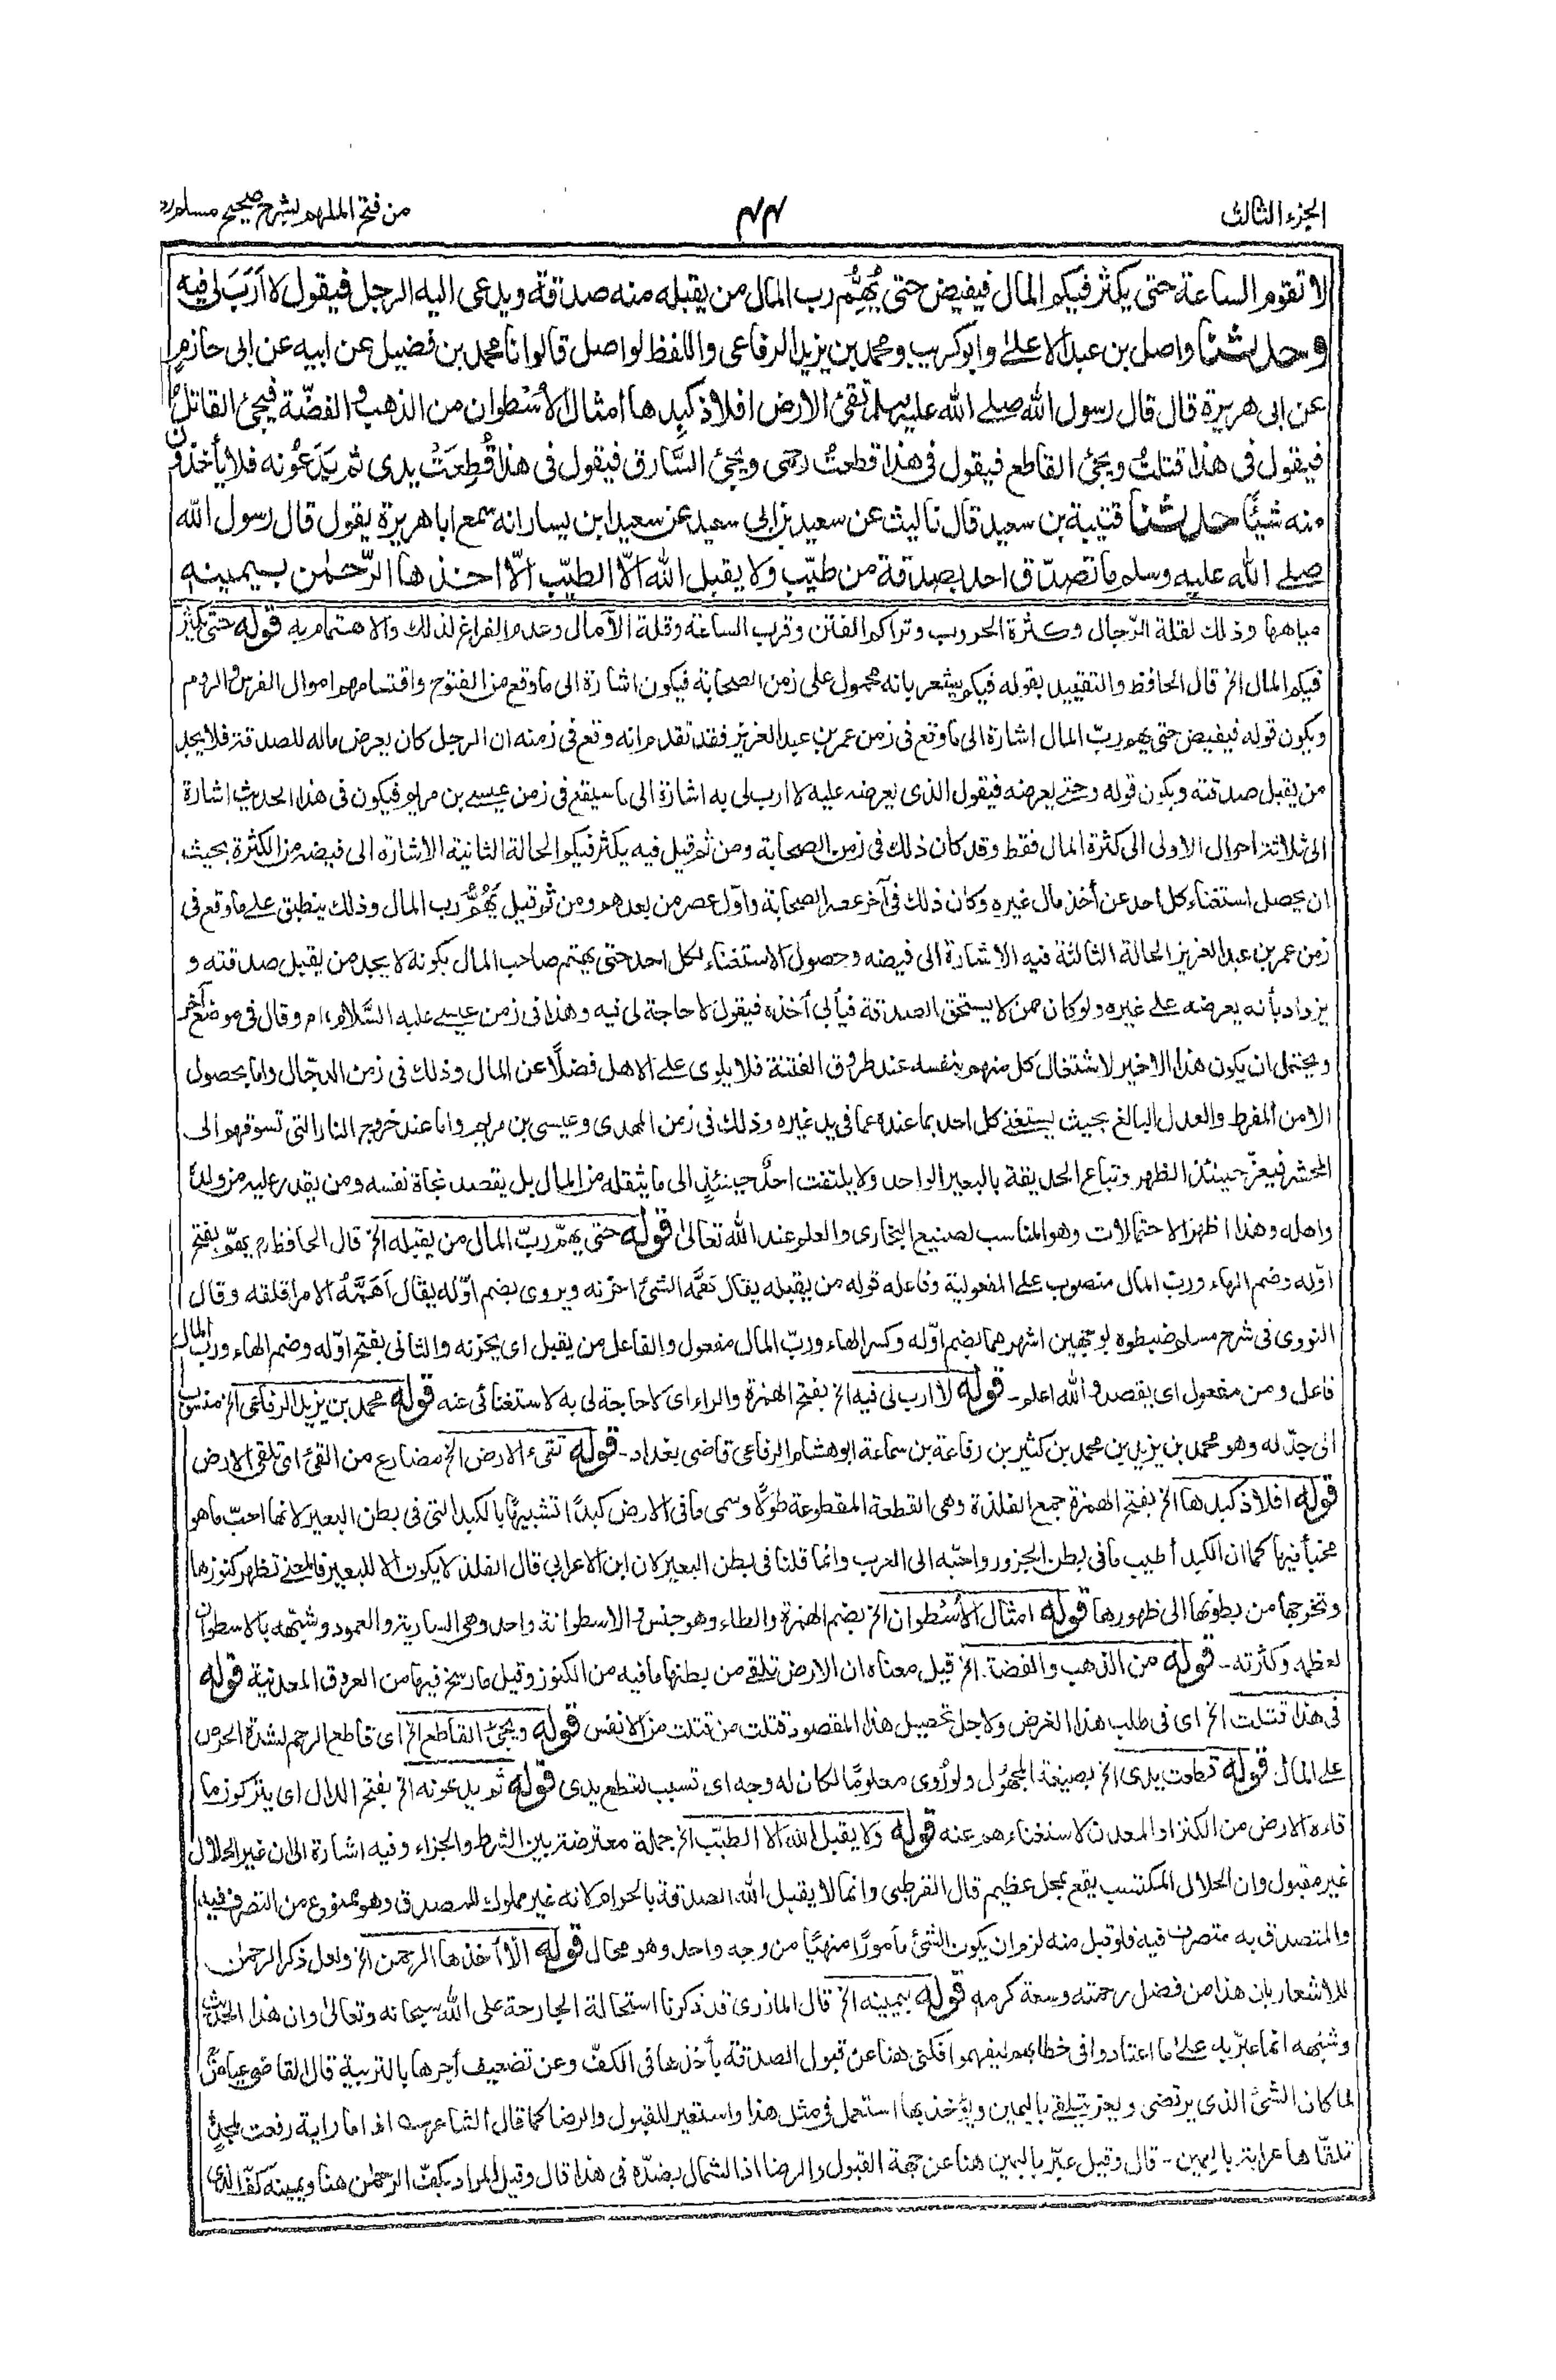 الجزء الثالث
٤٤
من فتح الملهم بشرح صحيح مسلم
لا تقوم الساعة حتى يكثر فيكم المال فيفيض حتى يُهِمَّ رب المال من يقبله منه صدقة ويدعى اليه الرجل فيقول لا أَرَبَ لى فيه
وحدثنا واصل بن عبد الاعلى وابوكريب ومحمد بن يزيد الرفاعى واللفظ لواصل قالوا نا محمد بن فضيل عن ابيه عن ابى حازم
عن ابى هريرة قال قال رسول الله صلى الله عليه وسلم تقئ الارض افلاذ كبدها امثال الأُسْطوان من الذهب والفضّة فيجئ القاتل
فيقول فى هذا قتلتُ ويجئ القاطع فيقول فى هذا قطعتُ رحمى ويجئ السَّارق فيقول فى هذا قُطِعَتْ يدى ثم يَدَعُونه فلا يأخذون
منه شيئًا حدثنا قتيبة بن سعيد قال نا ليث عن سعيد بن ابى سعيد عن سعيد ابن يسار انه سمع ابا هريرة يقول قال رسول الله
صلى الله عليه وسلم ما تصدّق احد بصدقة من طيّب ولا يقبل الله الّا الطيّب الّا اخذها الرّحمٰن بيمينه
مياهها وذلك لقلة الرّجال وكثرة الحروب وتراكم الفتن وقرب الساعة وقلة الآمال وعدم الفراغ لذلك والاهتمام به قوله حتى يكثر
فيكم المال الخ قال الحافظ والتقييد بقوله فيكم يشعر بانه محمول على زمن الصحابة فيكون اشارة الى ما وقع من الفتوح واقتسامهم اموال الفرس والروم
ويكون قوله فيفيض حتى يهم ربّ المال اشارة الى ما وقع فى زمن عمر بن عبد العزيز فقد تقدم انه وقع فى زمنه ان الرجل كان يعرض ماله للصدقة فلا يجد
من يقبل صدقته ويكون قوله وحتى يعرضه فيقول الذى يعرضه عليه لا ارب لى به اشارة الى ما سيقع فى زمن عيسى بن مريم فيكون فى هذا الحديث اشارة
الى ثلاثة احوال الاولى الى كثرة المال فقط وقد كان ذلك فى زمن الصحابة ومن ثم قيل فيه يكثر فيكم الحالة الثانية الاشارة الى فيضه من الكثرة بحيث
ان يحصل استغناء كل احد عن أخذ مال غيره وكان ذلك فى آخر عصر الصحابة واوّل عصر من بعدهم ومن ثم قيل يُهِمُّ رب المال وذلك ينطبق على ما وقع فى
زمن عمر بن عبد العزيز الحالة الثالثة فيه الاشارة الى فيضه وحصول الاستغناء لكل احد حتى يهتم صاحب المال بكونه لا يجد من يقبل صدقته و
يزداد بأنه يعرضه على غيره ولو كان ممن لا يستحق الصدقة فيأبى أخذه فيقول لا حاجة لى فيه وهذا فى زمن عيسى عليه السَّلام، اه وقال فى موضع آخر
ويحتمل ان يكون هذا الاخير لاشتغال كل منهم بنفسه عند طروق الفتنة فلا يلوى على الاهل فضلًا عن المال وذلك فى زمن الدجّال واما بحصول
الامن المفرط والعدل البالغ بحيث يستغنى كل احد بما عنده عما فى يد غيره وذلك فى زمن المهدى وعيسى بن مريم واما عند خروج النار التى تسوقهم الى
المحشر فيعزّ حينئذ الظهر وتباع الحديقة بالبعير الواحد ولا يلتفت احدٌ حينئذٍ الى ما يثقله من المال بل يقصد نجاة نفسه ومن يقدر عليه من ولده
واهله وهذا اظهر الاحتمالات وهو المناسب لصنيع البخارى والعلم عند الله تعالىٰ قوله حتى يهمّ ربّ المال من يقبله الخ قال الحافظ رح يهمّ بفتح
اوّله وضم الهاء وربّ المال منصوب على المفعولية وفاعله قوله من يقبله يقال همَّه الشئ احزنه ويروى بضم اوّله يقال أَهَمَّهُ الامر اقلقه وقال
النووى فى شرح مسلم ضبطوه بوجهين اشهرهما بضم اوّله وكسر الهاء وربّ المال مفعول والفاعل من يقبل اى يحزنه والثانى بفتح اوّله وضم الهاء ورب المال
فاعل ومن مفعول اى يقصد والله اعلم ـ قوله لا ارب لى فيه الخ بفتح الهمزة والراء اى لا حاجة لى به لاستغنائى عنه قوله محمد بن يزيد الرفاعى الخ منسوب
الى جدّ له وهو محمد بن يزيد بن محمد بن كثير بن رفاعة بن سماعة ابوهشام الرفاعى قاضى بغداد ـ قوله تقىء الارض الخ مضارع من القئ اى تلقى الارض
قوله افلاذ كبدها الخ بفتح الهمزة جمع الفلذة وهى القطعة المقطوعة طولًا وسمى ما فى الارض كبدًا تشبيهًا بالكبد التى فى بطن البعير لانها احبّ ما هو
مخبأ فيها كما ان الكبد أطيب ما فى بطن الجزور واحبّه الى العرب وانما قلنا فى بطن البعير لان ابن الاعرابى قال الفلذ لا يكون الا للبعير فالمعنى تظهر كنوزها
وتخرجها من بطونها الى ظهورها قوله امثال الأُسْطوان الخ بضم الهمزة والطاء وهو جنس الاسطوانة واحد وهى السارية والعمود وشبّهه بالاسطوان
لعظمه وكثرته ـ قوله من الذهب والفضة الخ قيل معناه ان الارض تلقى من بطنها ما فيه من الكنوز وقيل ما رسخ فيها من العروق المعدنية قوله
فى هذا قتلت الخ اى فى طلب هذا الغرض ولاجل تحصيل هذا المقصود قتلت من قتلت من الانفس قوله ويجئ القاطع الخ اى قاطع الرحم لشدة الحرص
على المال قوله قطعت يدى الخ بصيغة المجهول ولو رُوى معلومًا لكان له وجه اى تسبب لقطع يدى قوله ثم يدعونه الخ بفتح الدال اى يتركون ما
قاءه الارض من الكنز او المعدن لاستغناءهم عنه قوله ولا يقبل الله الا الطيّب الخ جملة معترضة بين الشرط والجزاء وفيه اشارة الى ان غير الحلال
غير مقبول وان الحلال المكتسب يقع بمحل عظيم قال القرطبى وانما لا يقبل الله الصدقة بالحرام لانه غير مملوك للمصدق وهو ممنوع من التصرف فيه
والمتصدق به متصرف فيه فلو قبل منه لزم ان يكون الشئ مأمورًا منهيًا من وجه واحد وهو محال قوله الّا أخذها الرحمن الخ ولعل ذكر الرحمن
للاشعار بان هذا من فضل رحمته وسعة كرمه قوله بيمينه الخ قال المازرى قد ذكرنا استحالة الجارحة على الله سبحانه وتعالىٰ وان هذا الحديث
وشبهه انما عبّر به على ما اعتادوا فى خطابهم ليفهموا فكنى هنا عن قبول الصدقة بأخذها فى الكفّ وعن تضعيف أجرها بالتربية قال القاضى عياض
لما كان الشئ الذى يرتضى ويعز يتلقى باليمين ويؤخذ بها استعمل فى مثل هذا واستعير للقبول والرضا كما قال الشاعر اذا ما راية رفعت لمجدٍ
تلقّاها عرابة باليمين ـ قال وقيل عبّر باليمين هنا عن جهة القبول والرضا اذ الشمال بضدّه فى هذا قال وقيل المراد بكفّ الرحمٰن هنا ويمينه كفّ الذى